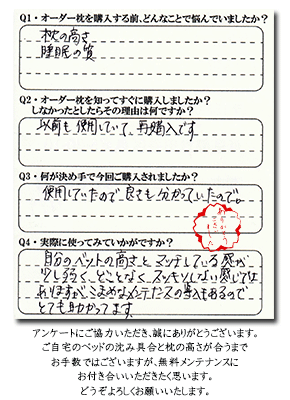 Q1・オーダー枕を購入する前、どんなことで悩んでいましたか?
枕の高さ
睡眠の質
Q2・オーダー枕を知ってすぐに購入しましたか?
しなかったとしたらその理由は何ですか?
以前も使用していて、再購入です
Q3・何が決め手で今回ご購入されましたか?
使用していたので良さも分かっていたので。
Q4・実際に使ってみていかがですか?
自分のベットの高さとマッチしている感が
少し弱く、どことなくスッキリしない感じでは
ありますが、こまめなメンテナンスの導入もあるので
とても助かってます。
アンケートにご協力いただき、誠にありがとうございます。
ご自宅のベッドの沈み具合と枕の高さが合うまで
お手数ではございますが、無料メンテナンスに
お付き合いいただきたく思います。
どうぞよろしくお願いいたします。